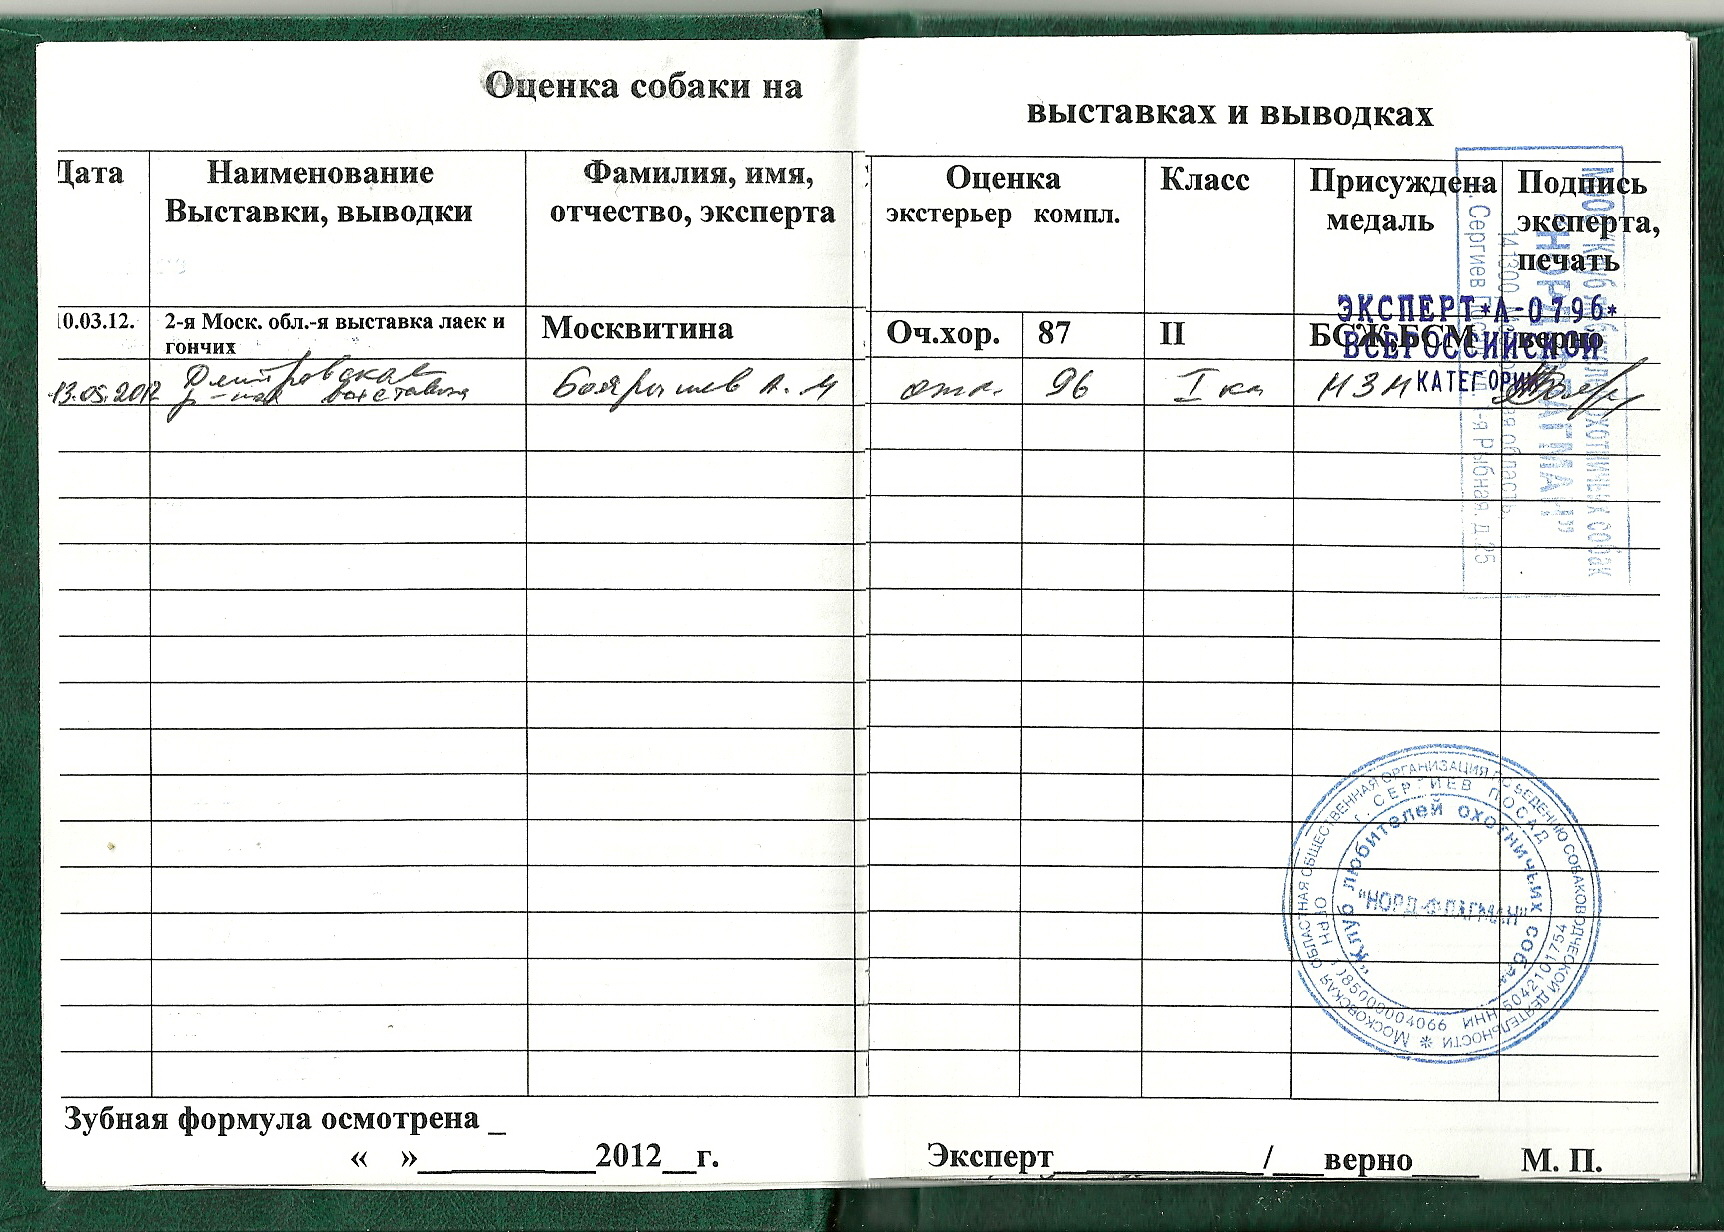 Оценка собаки на
выставках и выводках
Дата
Наименование
Выставки, выводки
Фамилия, имя,
отчество, эксперта
Оценка
экстерьер компл.
Класс
Присуждена
медаль
Подпись
эксперта,
печать
10.03.12.
2-я Моск. обл.-я выставка лаек и
гончих
Москвитина
Оч.хор.
87
II
БСЖ,БСМ
верно
ЭКСПЕРТ*А-0796*
ВСЕРОССИЙСКОЙ
КАТЕГОРИИ
13.05.2012
Дмитровская
р-ная выставка
А. И
отл.
96
I кл
МЗМ
"НОРД-ФЛАГМАН"
г. Сергиев
-я Рыбная, д.25
охотничьих собак
МОСКОВСКАЯ ОБЛАСТНАЯ ОБЩЕСТВЕННАЯ ОРГАНИЗАЦИЯ ПО ВЕДЕНИЮ СОБАКОВОДЧЕСКОЙ ДЕЯТЕЛЬНОСТИ
Г. СЕРГИЕВ ПОСАД
"Клуб любителей охотничьих собак
"НОРД-ФЛАГМАН"
ИНН 5042101754
Зубная формула осмотрена _
« »___________2012__г.
Эксперт_____________/___верно____
М. П.